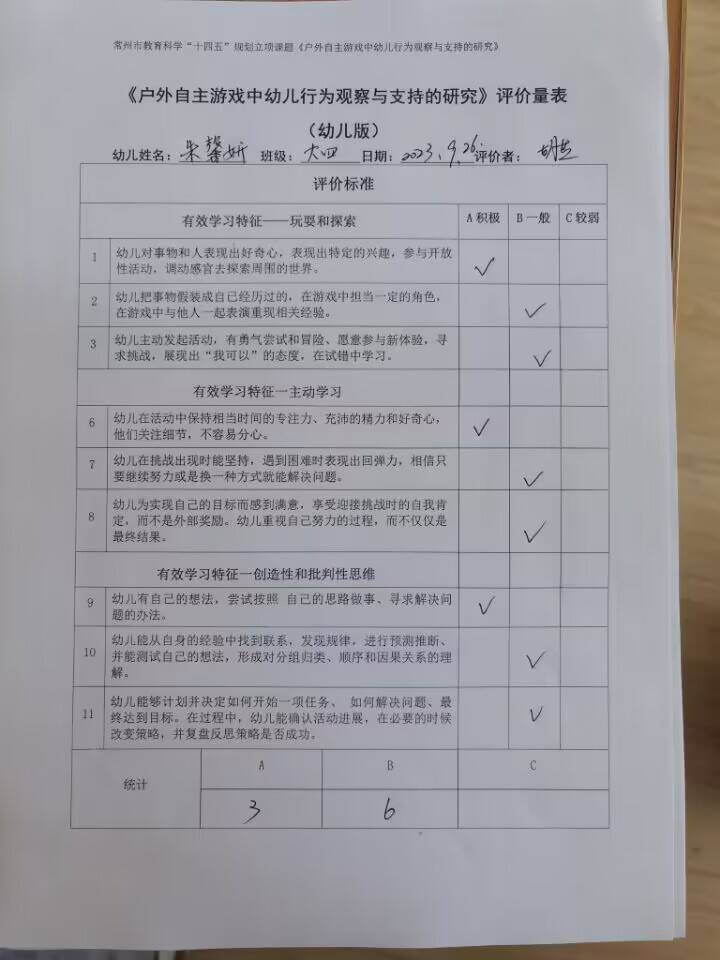 常州市教育科学“十四五”规划立项课题《户外自主游戏中幼儿行为观察与支持的研究》
《户外自主游戏中幼儿行为观察与支持的研究》评价量表
（幼儿版）
幼儿姓名：朱馨妍 班级：大四 日期：2023.9.26 评价者：胡芝
评价标准
有效学习特征——玩耍和探索 A 积极 B 一般 C 较弱
1 幼儿对事物和人表现出好奇心，表现出特定的兴趣，参与开放
性活动，调动感官去探索周围的世界。 ✓
2 幼儿把事物假装成自己经历过的，在游戏中担当一定的角色，
在游戏中与他人一起表演重现相关经验。 ✓
3 幼儿主动发起活动，有勇气尝试和冒险、愿意参与新体验，寻
求挑战，展现出“我可以”的态度，在试错中学习。 ✓
有效学习特征一主动学习
6 幼儿在活动中保持相当时间的专注力、充沛的精力和好奇心，
他们关注细节，不容易分心。 ✓
7 幼儿在挑战出现时能坚持，遇到困难时表现出回弹力，相信只
要继续努力或是换一种方式就能解决问题。 ✓
8 幼儿为实现自己的目标而感到满意，享受迎接挑战时的自我肯
定，而不是外部奖励。幼儿重视自己努力的过程，而不仅仅是
最终结果。 ✓
有效学习特征一创造性和批判性思维
9 幼儿有自己的想法，尝试按照 自己的思路做事、寻求解决问
题的办法。 ✓
10 幼儿能从自身的经验中找到联系，发现规律，进行预测推断、
并能测试自己的想法，形成对分组归类、顺序和因果关系的理
解。 ✓
11 幼儿能够计划并决定如何开始一项任务、 如何解决问题、最
终达到目标。在过程中，幼儿能确认活动进展，在必要的时候
改变策略，并复盘反思策略是否成功。 ✓
统计 A B C
3 6